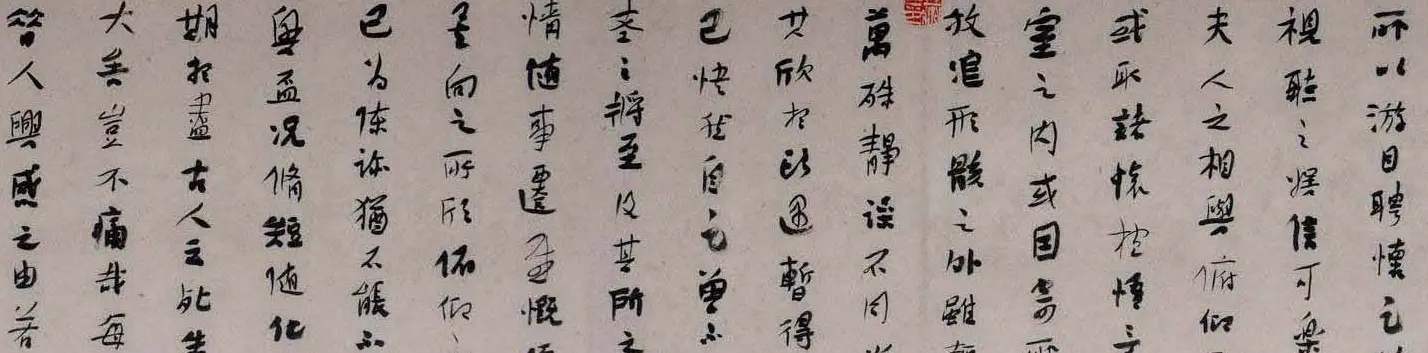 所以游目騁懷足
視聽之娛信可樂
夫人之相與俯仰
或取諸懷抱悟言
室之內或因寄所
放浪形骸之外雖
萬殊靜躁不同當
其欣於所遇暫得
己快然自足曾不
老之將至及其所之
情隨事遷感慨係
矣向之所欣俛仰之
已為陳跡猶不能不
興盡況脩短隨化
期於盡古人云死生
大矣豈不痛哉每
昔人興感之由若